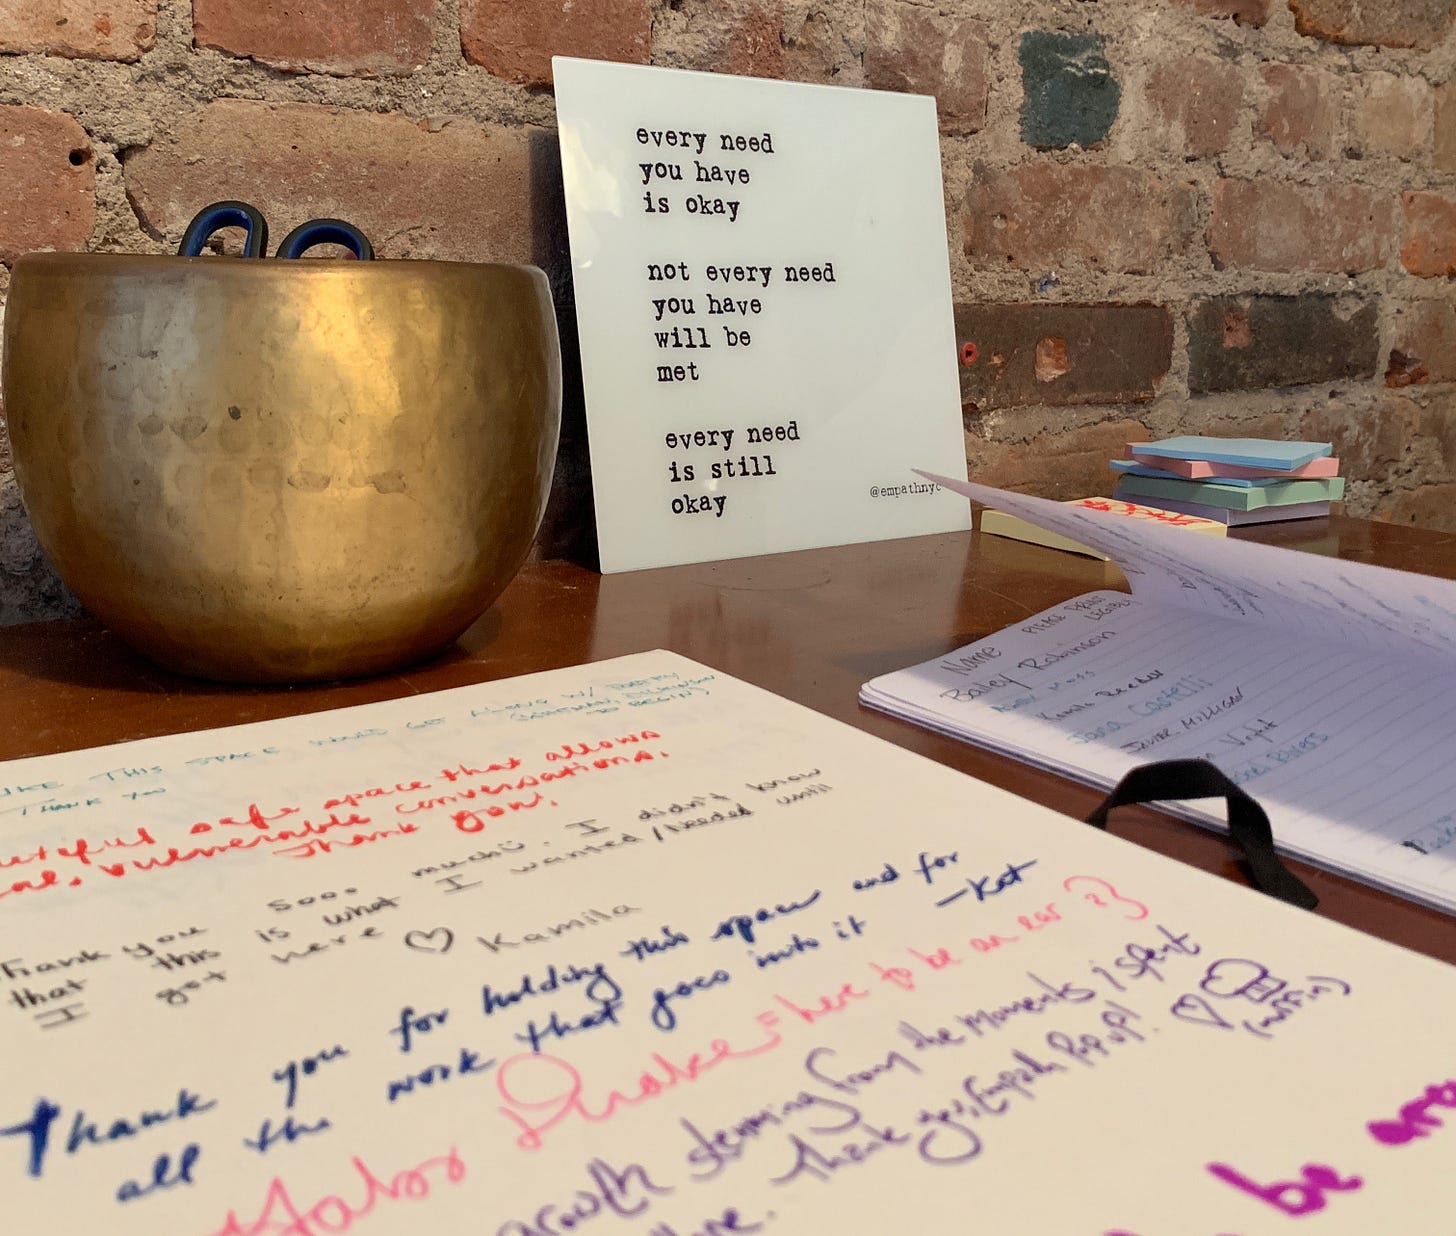 every need
you have
is okay
not every need
you have
will be
met
every need
is still
okay
@empathnyc
Name
PLEASE PRINT
LEGIBLY
Bailey Robinson
Moss
Kamila
Jana Castelli
JAVIER MILLIGAN
LIKE THIS SPACE WOULD GET ALONG W/
TO BEGIN)
THANK YOU
safe space that allows
vulnerable conversations.
Thank you.
Thank you sooo much I didn't know
that this is what I wanted/Needed until
I got here ♡ Kamila
Thank you for holding this space and for
all the work that goes into it —Kat
= here to be an ear :3
growth stemming from the moments I spent
Thank you, Empath Pop up! ♡
be